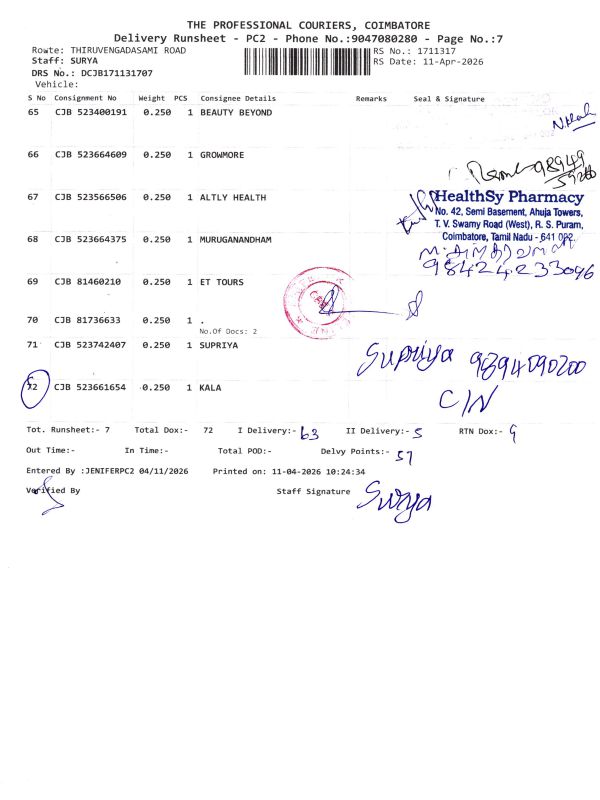 THE PROFESSIONAL COURIERS, COIMBATORE
Delivery Runsheet - PC2 - Phone No.:9047080280 - Page No.:7
Rowte: THIRUVENGADASAMI ROAD
RS No.: 1711317
Staff: SURYA
RS Date: 11-Apr-2026
DRS No.: DCJB171131707
Vehicle:
S No Consignment No Weight PCS Consignee Details Remarks Seal & Signature
65 CJB 523400191 0.250 1 BEAUTY BEYOND
66 CJB 523664609 0.250 1 GROWMORE
98949
67 CJB 523566506 0.250 1 ALTLY HEALTH
HealthSy Pharmacy
No. 42, Semi Basement, Ahuja Towers,
T. V. Swamy Road (West), R. S. Puram,
Coimbatore, Tamil Nadu - 641 002.
68 CJB 523664375 0.250 1 MURUGANANDHAM
98424233096
69 CJB 81460210 0.250 1 ET TOURS
70 CJB 81736633 0.250 1 .
No.Of Docs: 2
71 CJB 523742407 0.250 1 SUPRIYA
Supriya 9894090200
72 CJB 523661654 0.250 1 KALA
C/N
Tot. Runsheet:- 7 Total Dox:- 72 I Delivery:- 63 II Delivery:- 5 RTN Dox:- 9
Out Time:- In Time:- Total POD:- Delvy Points:- 57
Entered By :JENIFERPC2 04/11/2026 Printed on: 11-04-2026 10:24:34
Verified By Staff Signature Surya